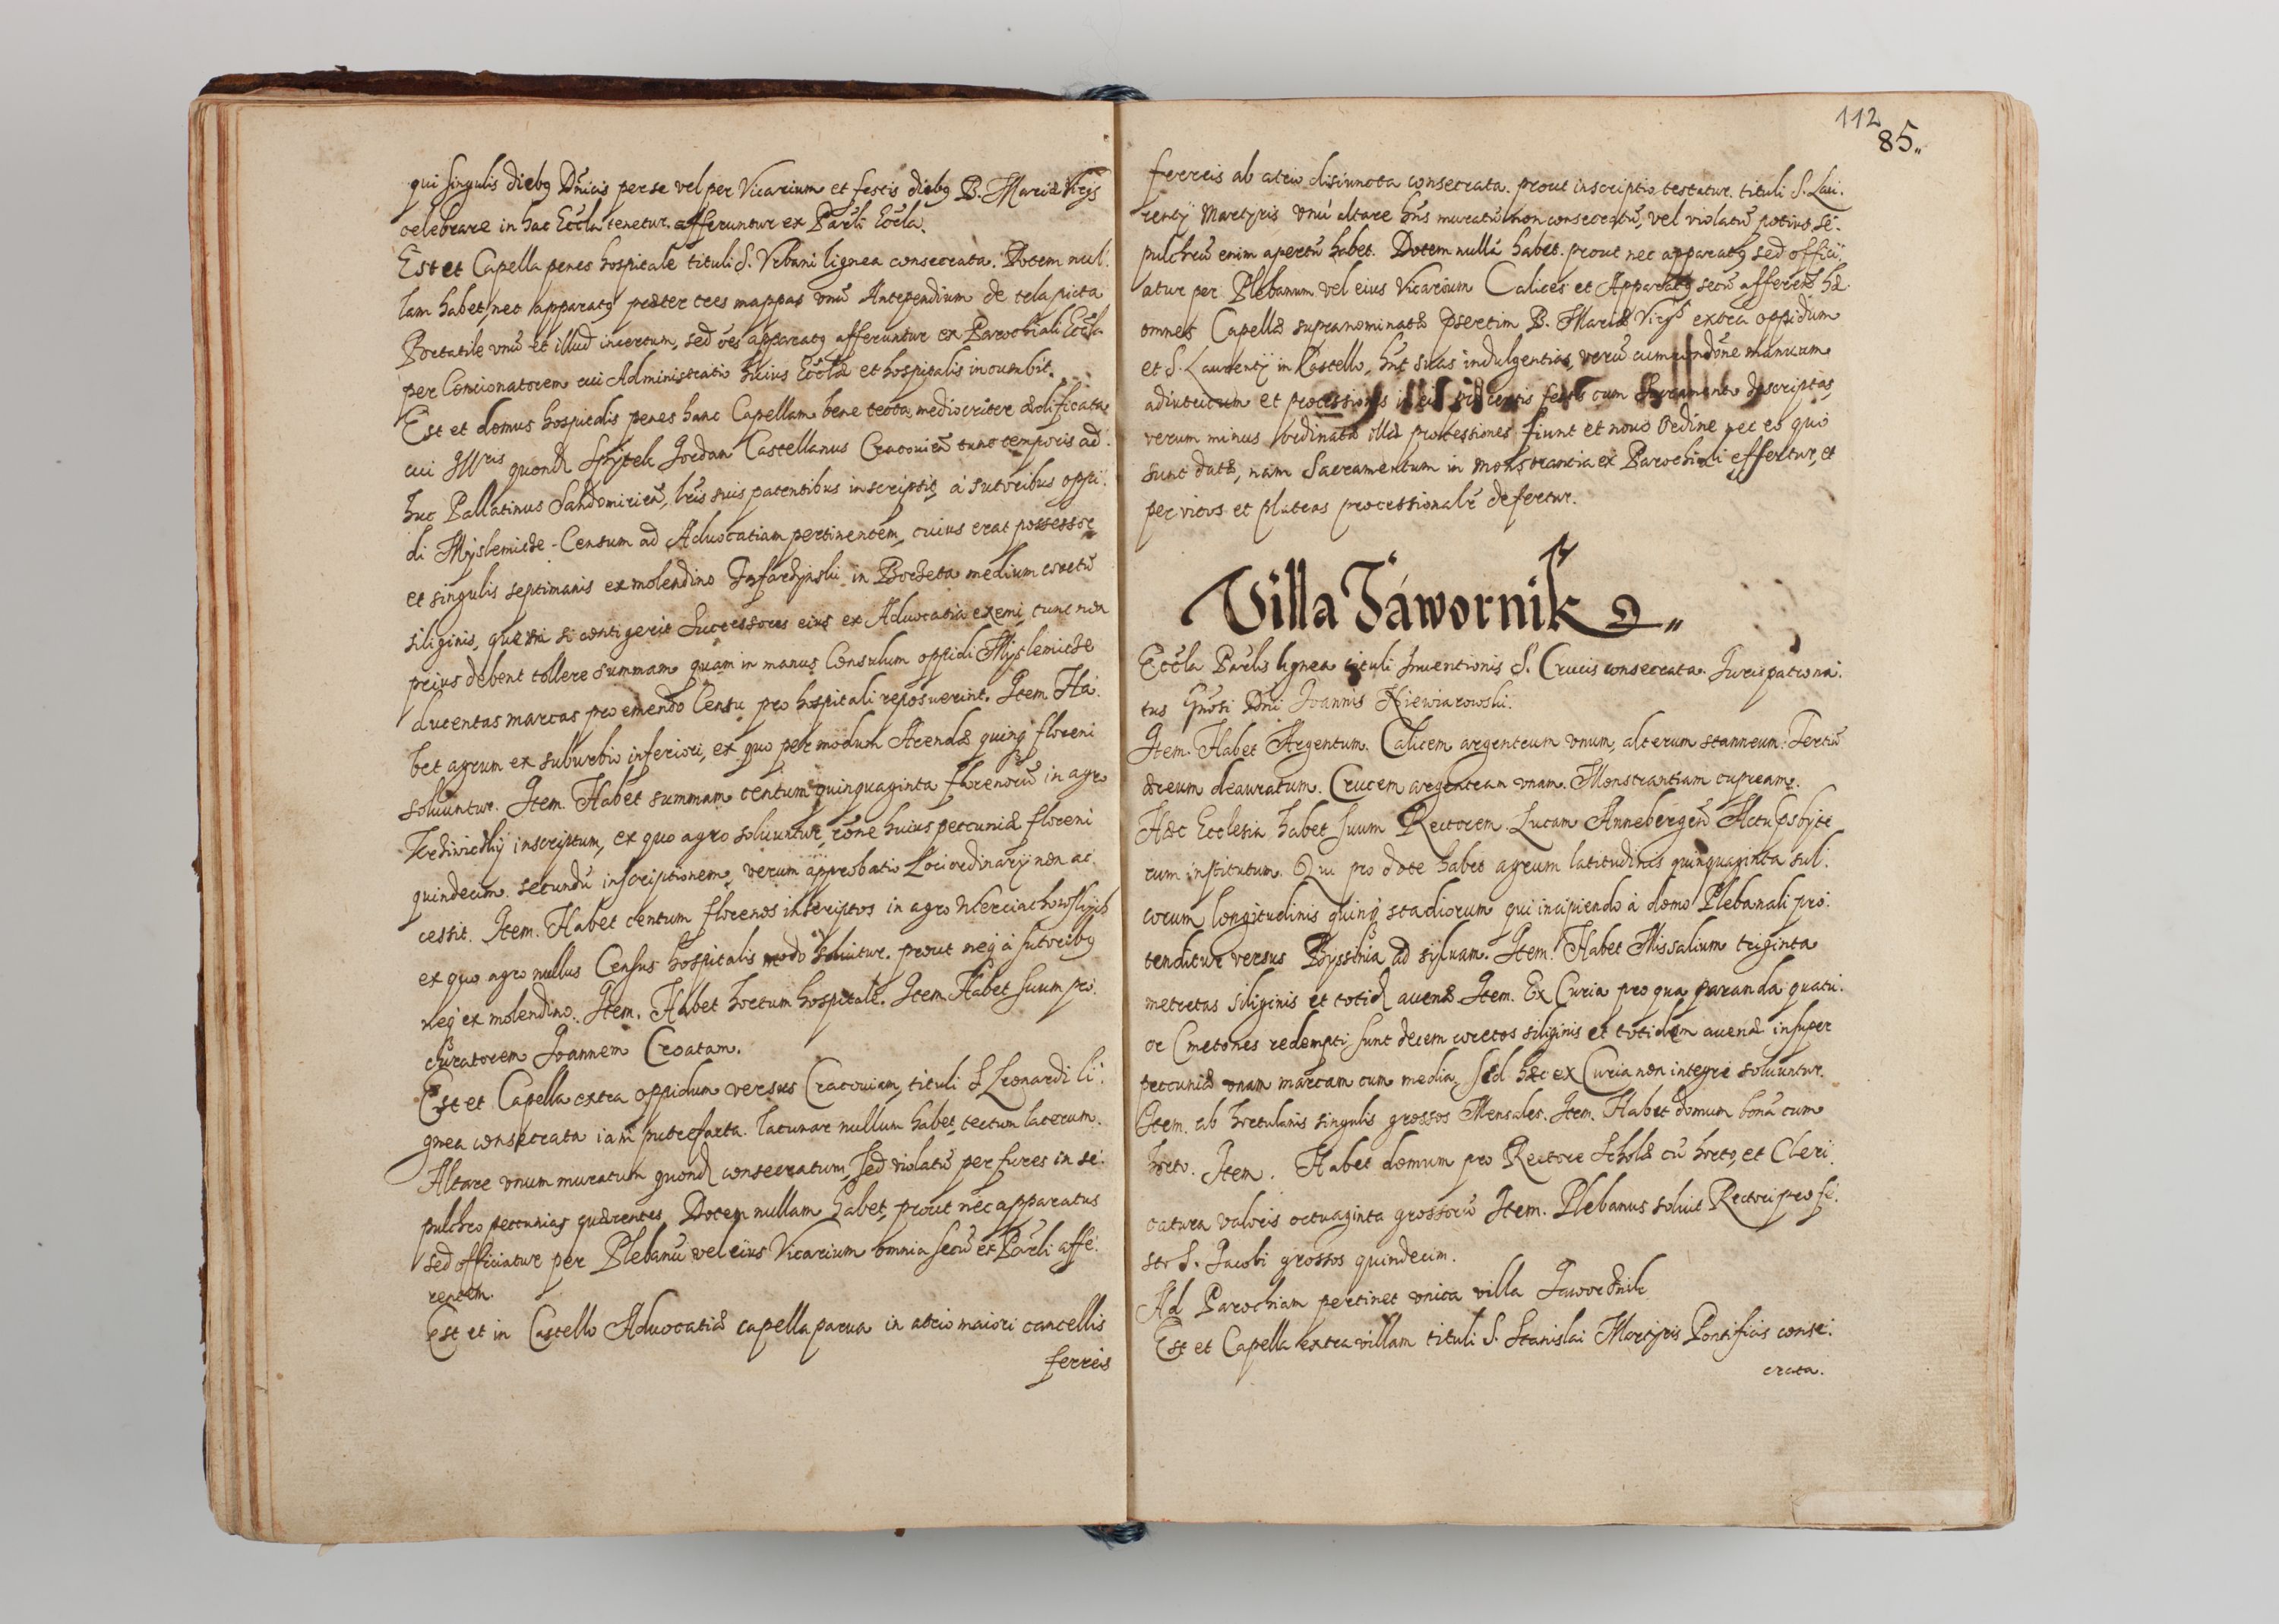 qui singulis diebꝫ Dnīcis per se vel per Vicarium et festis diebꝫ B. Mariæ Virgs
celebrare in hac Eccla tenetur. afferuntur ex Parli Eccla.
Est et Capella penes hospitale tituli S. Vrbani lignea consecrata. Dotem nul:
lam habet, nec apparatꝫ præter tres mappas vnū Antependium de tela picta
Portatile vnū et illud incertum, sed oēs apparatꝫ afferuntur ex Parochiali Eccla
per Concionatorem cui Administratio huius Ecclæ et hospitalis incumbit.
Est et domus hospitalis penes hanc Capellam bene tecta mediocriter ædificata
cui Illris quond Spÿtek Jordan Castellanus Cracouieñ tunc temporis ad:
huc Pallatinus Sandomirieñ, lris suis patentibus inscripsit, á sutoribus oppi:
di Myslemicze Censum ad Aduocatiam pertinentem, cuius erat possessor
et singulis septimanis ex molendino in medium coretū
siliginis, quem si contigerit Successores eius ex Aduocatia exemi, tunc non
prius debent tollere summam quam in manus Consulum oppidi Myslemicze
ducentas marcas pro emendo Censu pro hospitali reposuerint. Item. Ha:
bet agrum ex suburbio inferiori, ex quo per modum Arendæ quinqꝫ floreni
soluuntur. Item. Habet summam centum quinquaginta florenorū in agro
inscriptum, ex quo agro soluuntur, rōne huius pecuniæ floreni
quindecim. secundū inscriptionem, verum approbatio Loci ordinarÿ non ac:
cessit. Item. Habet centum florenos inscriptos in agro
ex quo agro nullus Census hospitalis modo soluitur. prout neqꝫ à sutoribꝫ
neqꝫ ex molendino. Item. Habet hortum hospitale. Item. Habet suum pro:
curatorem Joannem Croatam.
Est et Capella extra oppidum versus Cracouiam, tituli S. Leonardi li:
gnea consecrata iam putrefacta. lacunar nullum habet, tectum laterum.
Altare vnum muratum quond consecratum, sed violatū per fures in se:
pulchro pecunias quærentes. Dotem nullam habet, prout nec apparatus
sed officiatur per Plebanū vel eius Vicarium omnia secū ex Parli affe:
rentem.
Est et in Castello Aduocatiæ capella parua in atrio maiori cancellis
ferreis
112
85.,
ferreis ab atrio disiuncta consecrata. prout inscriptio testatur. tituli S. Lau:
rentÿ Martyris vnū altare hns muratū non consecratū, vel violatū potius, se:
pulchrū enim apertū habet. Dotem nullā habet. prout nec apparatꝫ sed offici:
atur per Plebanum vel eius Vicarium Calices et Apparatꝫ secū afferent hæ
omnes Capellæ supranominatæ psertim B. Mariæ Virgs extra oppidum
et S. Laurentÿ in Kastello, hnt suas indulgentias, verū cum manuum
adiutricum et processiones festis cum Sacramento descriptas,
verum minus ordinatæ illæ processiones fiunt et nouo Ordine nec eo quo
sunt datæ, nam Sacramentum in monstrantia ex Parochiali effertur, et
per vicos et plateas processionalr defertur.
Villa Jáwornik
Eccla Parlis lignea tituli Inuentionis S. Crucis consecrata. Juris patrona:
tus Gnosi Dni Joannis Niewiarowski.
Item. Habet Argentum. Calicem argenteum vnum, alterum stanneum. Tertiū
æreum deauratum. Crucem argenteam vnam. Monstrantiam cupream.
Hæc Ecclesia habet suum Rectorem Lucam Annebergeñ Actu psbyte
rum institutum. Qui pro dote habet agrum latitudinis quinquaginta sul:
corum longitudinis quinqꝫ stadiorum qui incipiendo à domo Plebanali pro:
tenditur versus ad syluam. Item. Habet Missalium triginta
metretas siliginis et totid auenæ. Item. Ex Curia pro qua paranda quatu:
or Cmetones redempti sunt decem coretos siliginis et totidem auenæ insuper
pecuniæ vnam marcam cum media, sed hæc ex Curia non integre soluuntur.
Item. ab hortulanis singulis grossos Mensales. Item. Habet domum bonā cum
horto. Item. Habet domum pro Rectore Scholæ cū horto, et Cleri:
catura valoris octuaginta grossorū Item. Plebanus soluit Rectori pro fe:
sto S. Jacobi grossos quindecim.
Ad Parochiam pertinet vnica villa Jawornik
Est et Capella extra villam tituli S. Stanislai Martyris Pontificis conse:
crata.